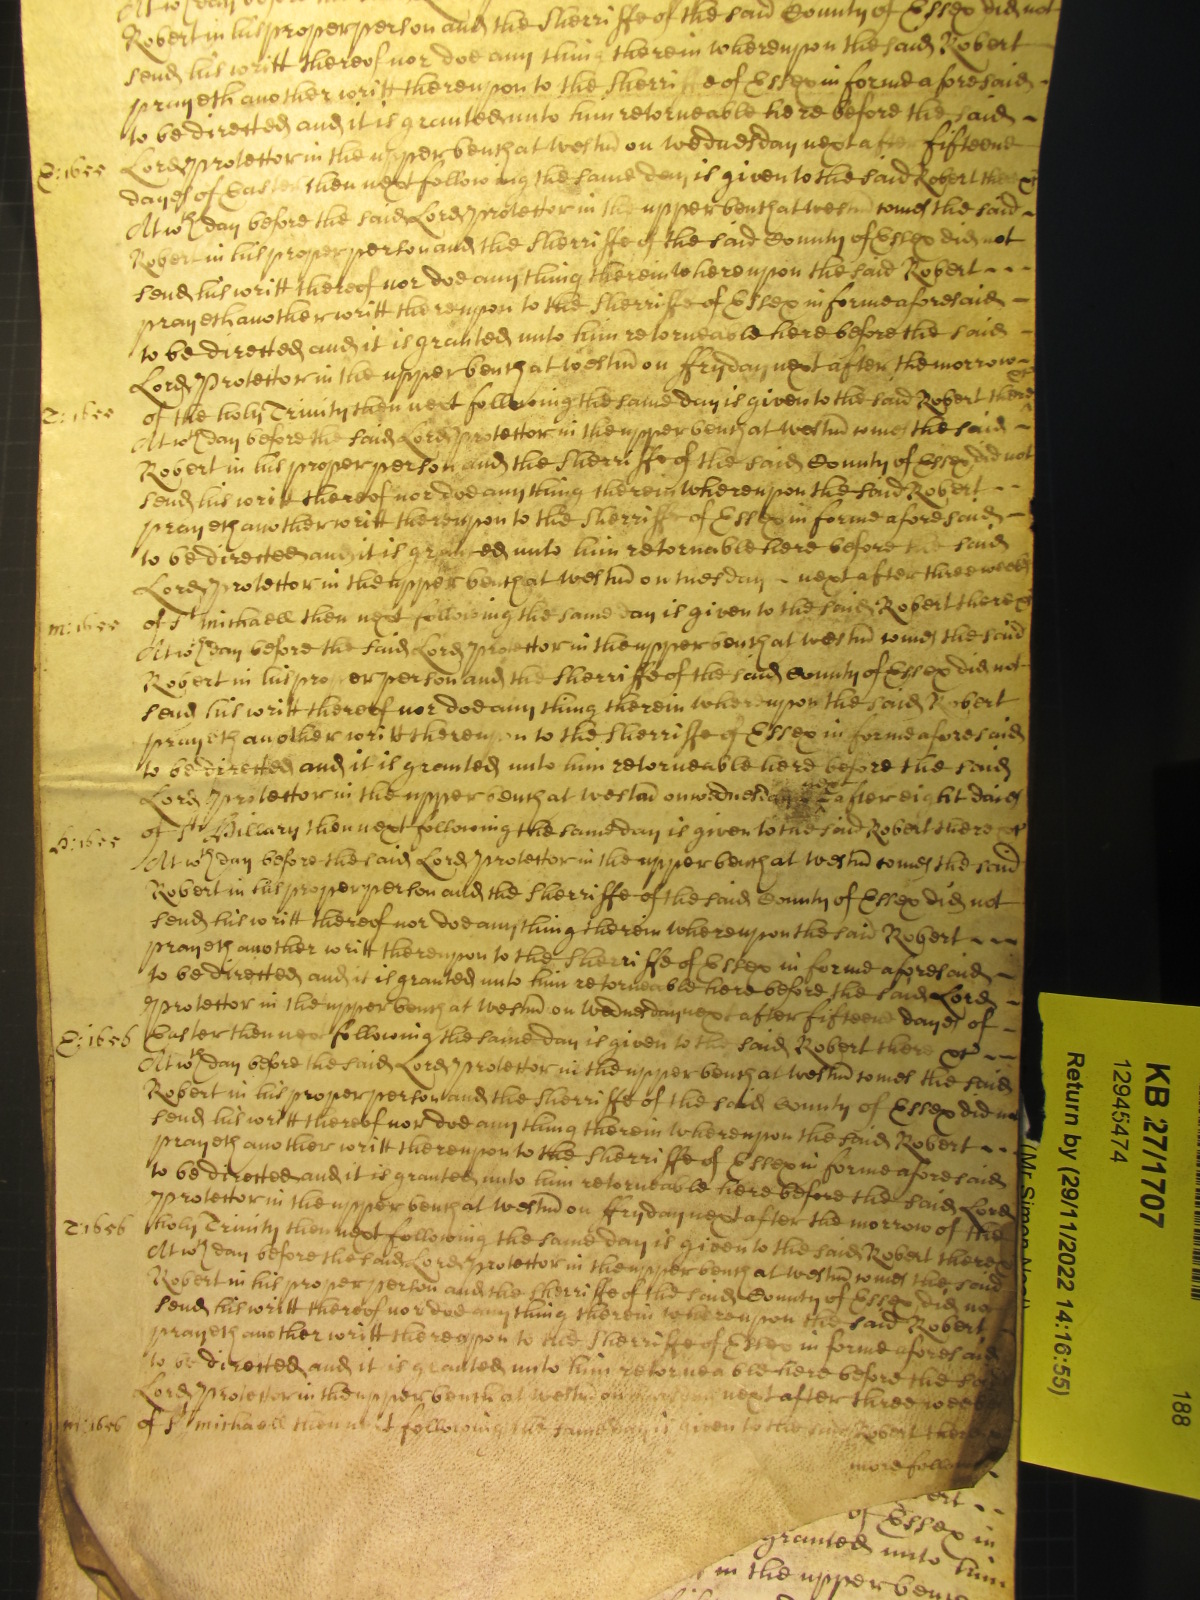 At wch day before the
Robert in his proper person and the Sherriffe of the said County of Essex did not
send his writt thereof nor doe any thing therein whereupon the said Robert
prayeth another writt thereupon to the Sherriffe of Essex in forme aforesaid -
to be directed and it is granted unto him retorneable here before the said -
E: 1655 Lord Protector in the upper bench at Westm on Wednesday next after fifteene
dayes of Easter then next following the same day is given to the said Robert there &c
At wch day before the said Lord Protector in the upper bench at Westm comes the said -
Robert in his proper person and the Sherriffe of the said County of Essex did not
send his writt thereof nor doe any thing therein whereupon the said Robert - - -
prayeth another writt thereupon to the Sherriffe of Essex in forme aforesaid -
to be directed and it is granted unto him retorneable here before the said -
Lord Protector in the upper bench at Westm on ffryday next after the morrow -
T: 1655 of the holy Trinity then next following the same day is given to the said Robert there &c
At wch day before the said Lord Protector in the upper bench at Westm comes the said -
Robert in his proper person and the Sherriffe of the said County of Essex did not
send his writt thereof nor doe any thing therein whereupon the said Robert - -
prayeth another writt thereupon to the Sherriffe of Essex in forme aforesaid -
to be directed and it is granted unto him retornable here before the said
Lord Protector in the upper bench at Westm on tuesday - next after three weekes
M: 1655 of St Michaell then next following the same day is given to the said Robert there &c
At wch day before the said Lord Protector in the upper bench at Westm comes the said
Robert in his proper person and the Sherriffe of the said County of Essex did not
send his writt thereof nor doe any thing therein whereupon the said Robert
prayeth another writt thereupon to the Sherriffe of Essex in forme aforesaid
to be directed and it is granted unto him retorneable here before the said
Lord Protector in the upper bench at Westm on wednesday next after eight daies
H: 1655 of St Hillary then next following the same day is given to the said Robert there &c
At wch day before the said Lord Protector in the upper bench at Westm comes the said
Robert in his proper person and the Sherriffe of the said County of Essex did not
send his writt thereof nor doe any thing therein whereupon the said Robert - - -
prayeth another writt thereupon to the Sherriffe of Essex in forme aforesaid -
to be directed and it is granted unto him retorneable here before the said Lord -
Protector in the upper bench at Westm on Wednesday next after fifteene dayes of -
E: 1656 Easter then next following the same day is given to the said Robert there &c - -
At wch day before the said Lord Protector in the upper bench at Westm comes the said
Robert in his proper person and the Sherriffe of the said County of Essex did not
send his writt thereof nor doe any thing therein whereupon the said Robert - - -
prayeth another writt thereupon to the Sherriffe of Essex in forme aforesaid
to be directed and it is granted unto him retorneable here before the said Lord
Protector in the upper bench at Westm on ffryday next after the morrow of the
T: 1656 holy Trinity then next following the same day is given to the said Robert there &c
At wch day before the said Lord Protector in the upper bench at Westm comes the said
Robert in his proper person and the Sherriffe of the said County of Essex did not
send his writt thereof nor doe any thing therein whereupon the said Robert -
prayeth another writt thereupon to the Sherriffe of Essex in forme aforesaid
to be directed and it is granted unto him retorneable here before the said
Lord Protector in the upper bench at Westm on next after three weekes
M: 1656 of St Michaell then next following the same day is given to the said Robert there
more follow
of Essex in
granted unto him
in the upper bench
KB 27/1707
12945474
Return by (29/11/2022 14:16:55)
188